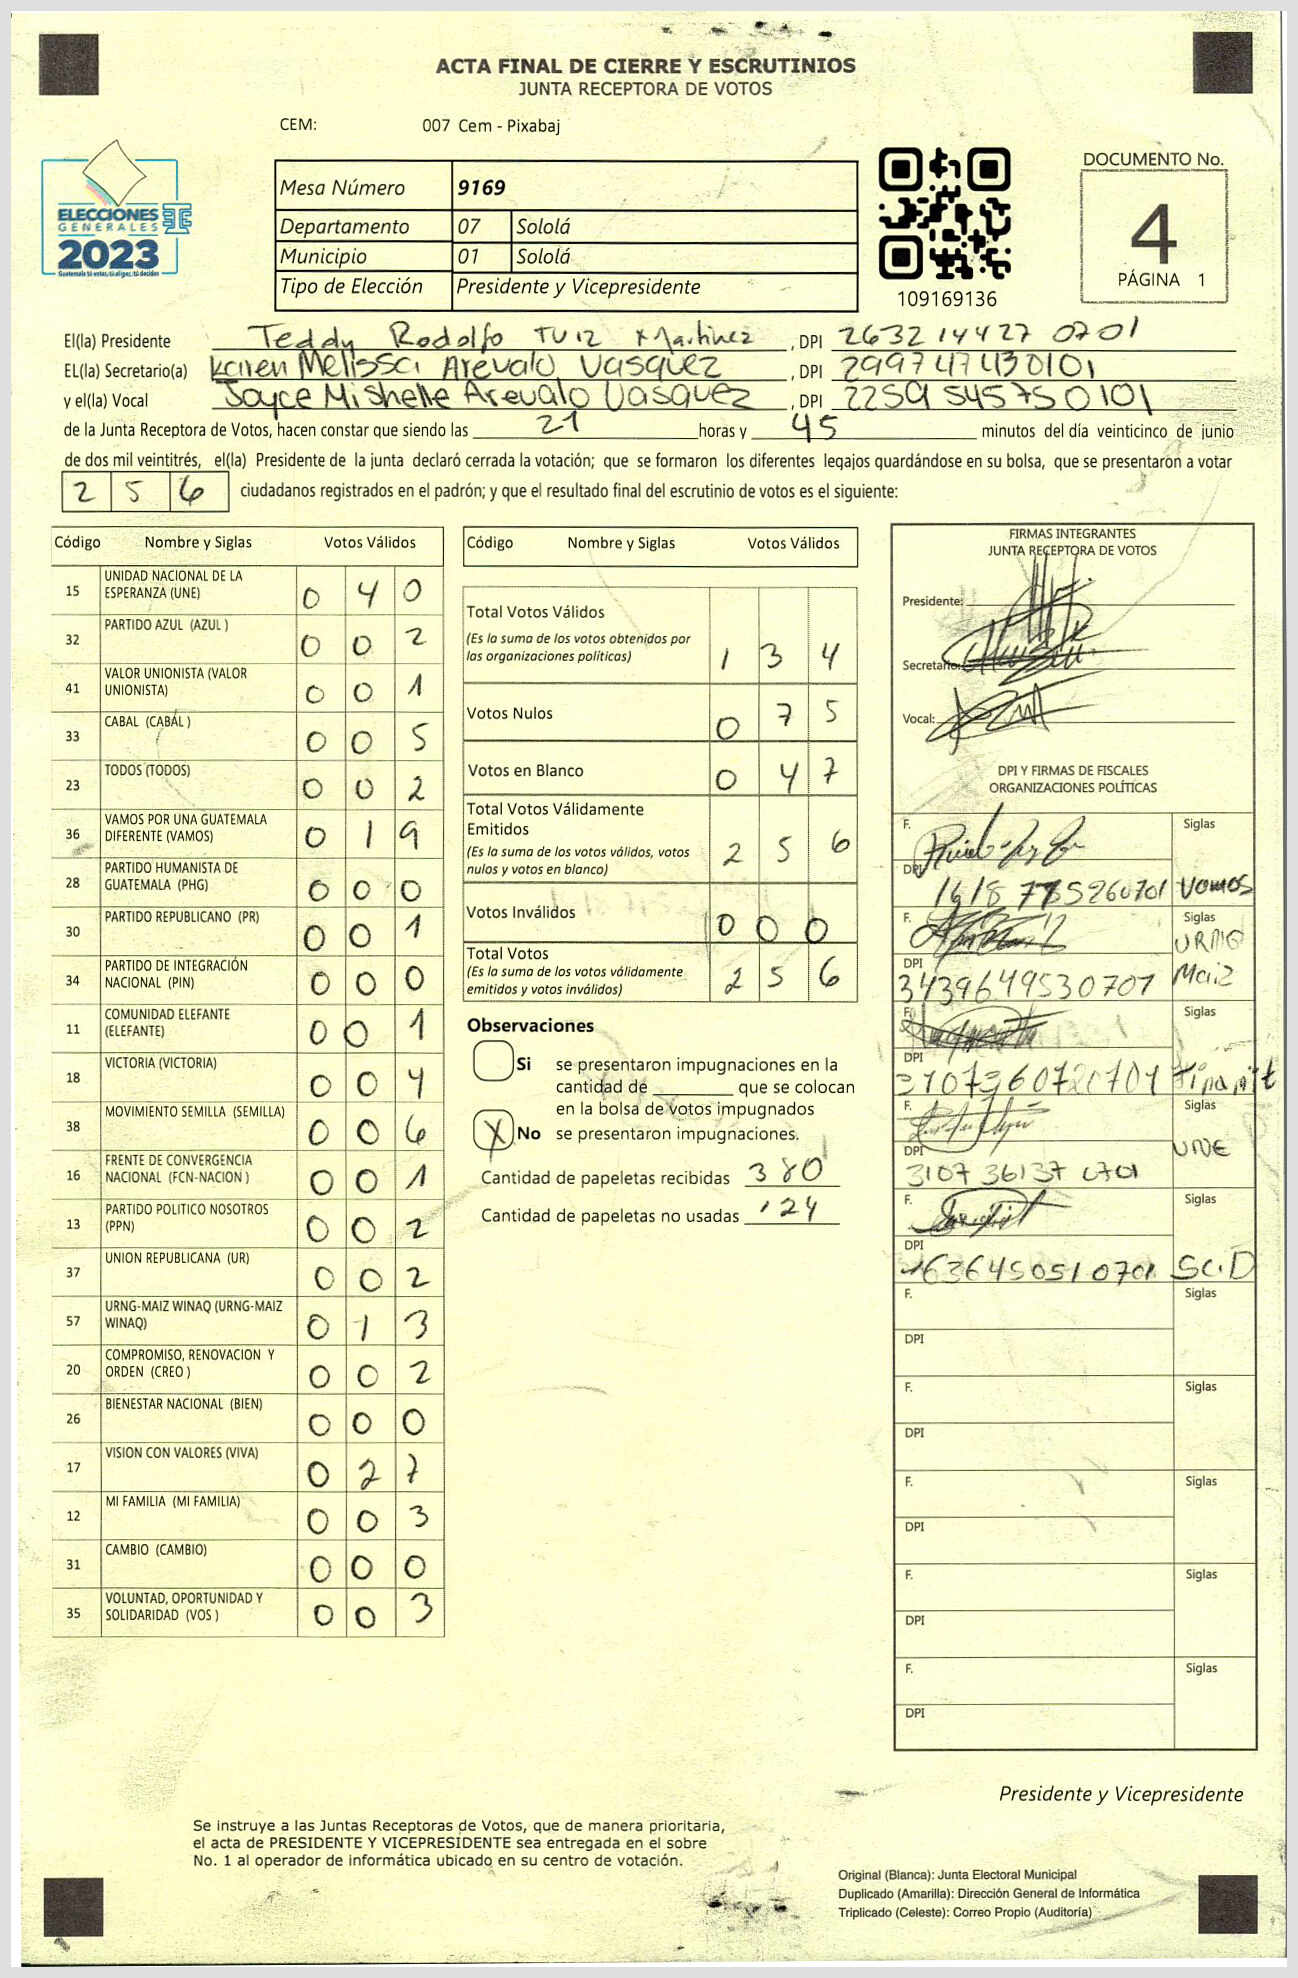 ACTA FINAL DE CIERRE Y ESCRUTINIOS
JUNTA RECEPTORA DE VOTOS
CEM: 007 Cem - Pixabaj
ELECCIONES
GENERALES
2023
Guatemala tú votas, tú eliges, tú decides
Mesa Número 9169
Departamento 07 Sololá
Municipio 01 Sololá
Tipo de Elección Presidente y Vicepresidente
109169136
DOCUMENTO No.
4
PÁGINA 1
El(la) Presidente Teddy Rodolfo Martinez , DPI 2632 14427 0701
EL(la) Secretario(a) Karen Melissa Arevalo Vasquez , DPI 2997474130101
y el(la) Vocal Joyce Mishelle Arevalo Vasquez , DPI 2259 545750101
de la Junta Receptora de Votos, hacen constar que siendo las 21 horas y 45 minutos del día veinticinco de junio
de dos mil veintitrés, el(la) Presidente de la junta declaró cerrada la votación; que se formaron los diferentes legajos guardándose en su bolsa, que se presentaron a votar
2 5 6 ciudadanos registrados en el padrón; y que el resultado final del escrutinio de votos es el siguiente:
Código Nombre y Siglas Votos Válidos
15 UNIDAD NACIONAL DE LA
ESPERANZA (UNE) 0 4 0
32 PARTIDO AZUL (AZUL ) 0 0 2
41 VALOR UNIONISTA (VALOR
UNIONISTA) 0 0 1
33 CABAL (CABAL ) 0 0 5
23 TODOS (TODOS) 0 0 2
36 VAMOS POR UNA GUATEMALA
DIFERENTE (VAMOS) 0 1 9
28 PARTIDO HUMANISTA DE
GUATEMALA (PHG) 0 0 0
30 PARTIDO REPUBLICANO (PR) 0 0 1
34 PARTIDO DE INTEGRACIÓN
NACIONAL (PIN) 0 0 0
11 COMUNIDAD ELEFANTE
(ELEFANTE) 0 0 1
18 VICTORIA (VICTORIA) 0 0 4
38 MOVIMIENTO SEMILLA (SEMILLA) 0 0 6
16 FRENTE DE CONVERGENCIA
NACIONAL (FCN-NACION ) 0 0 1
13 PARTIDO POLITICO NOSOTROS
(PPN) 0 0 2
37 UNION REPUBLICANA (UR) 0 0 2
57 URNG-MAIZ WINAQ (URNG-MAIZ
WINAQ) 0 1 3
20 COMPROMISO, RENOVACION Y
ORDEN (CREO ) 0 0 2
26 BIENESTAR NACIONAL (BIEN) 0 0 0
17 VISION CON VALORES (VIVA) 0 2 7
12 MI FAMILIA (MI FAMILIA) 0 0 3
31 CAMBIO (CAMBIO) 0 0 0
35 VOLUNTAD, OPORTUNIDAD Y
SOLIDARIDAD (VOS ) 0 0 3
Código Nombre y Siglas Votos Válidos
Total Votos Válidos
(Es la suma de los votos obtenidos por
las organizaciones políticas) 1 3 4
Votos Nulos 0 7 5
Votos en Blanco 0 4 7
Total Votos Válidamente
Emitidos
(Es la suma de los votos válidos, votos
nulos y votos en blanco) 2 5 6
Votos Inválidos 0 0 0
Total Votos
(Es la suma de los votos válidamente
emitidos y votos inválidos) 2 5 6
Observaciones
Si se presentaron impugnaciones en la
cantidad de ________ que se colocan
en la bolsa de votos impugnados
X No se presentaron impugnaciones.
Cantidad de papeletas recibidas 380
Cantidad de papeletas no usadas 124
FIRMAS INTEGRANTES
JUNTA RECEPTORA DE VOTOS
Presidente:
Secretario:
Vocal:
DPI Y FIRMAS DE FISCALES
ORGANIZACIONES POLÍTICAS
F. Siglas
DPI Vamos
F. Siglas
URNG
Maiz
DPI 3439649530701
F. Siglas
DPI
F. Siglas
UNE
DPI 3107 36137 0701
F. Siglas
DPI
F. Siglas
DPI
F. Siglas
DPI
F. Siglas
DPI
F. Siglas
DPI
F. Siglas
DPI
Presidente y Vicepresidente
Se instruye a las Juntas Receptoras de Votos, que de manera prioritaria,
el acta de PRESIDENTE Y VICEPRESIDENTE sea entregada en el sobre
No. 1 al operador de informática ubicado en su centro de votación.
Original (Blanca): Junta Electoral Municipal
Duplicado (Amarilla): Dirección General de Informática
Triplicado (Celeste): Correo Propio (Auditoría)